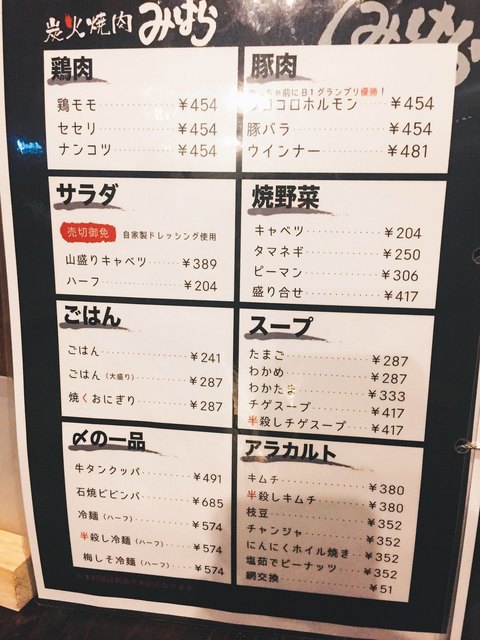 炭火焼肉 みはら
鶏肉
鶏モモ ¥454
セセリ ¥454
ナンコツ ¥454
豚肉
ちゃ前にB1グランプリ優勝!
シロコロホルモン ¥454
豚バラ ¥454
ウインナー ¥481
サラダ
売切御免 自家製ドレッシング使用
山盛りキャベツ ¥389
ハーフ ¥204
焼野菜
キャベツ ¥204
タマネギ ¥250
ピーマン ¥306
盛り合せ ¥417
ごはん
ごはん ¥241
ごはん(大盛り) ¥287
焼くおにぎり ¥287
スープ
たまご ¥287
わかめ ¥287
わかたま ¥333
チゲスープ ¥417
半殺しチゲスープ ¥417
〆の一品
牛タンクッパ ¥491
石焼ビビンバ ¥685
冷麺(ハーフ) ¥574
半殺し冷麺(ハーフ) ¥574
梅しそ冷麺(ハーフ) ¥574
アラカルト
キムチ ¥380
半殺しキムチ ¥380
枝豆 ¥352
チャンジャ ¥352
にんにくホイル焼き ¥352
塩茹でピーナッツ ¥352
網交換 ¥51